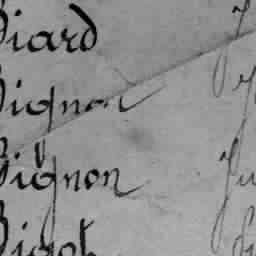 Biard
Bignon
Bignon
Bigot